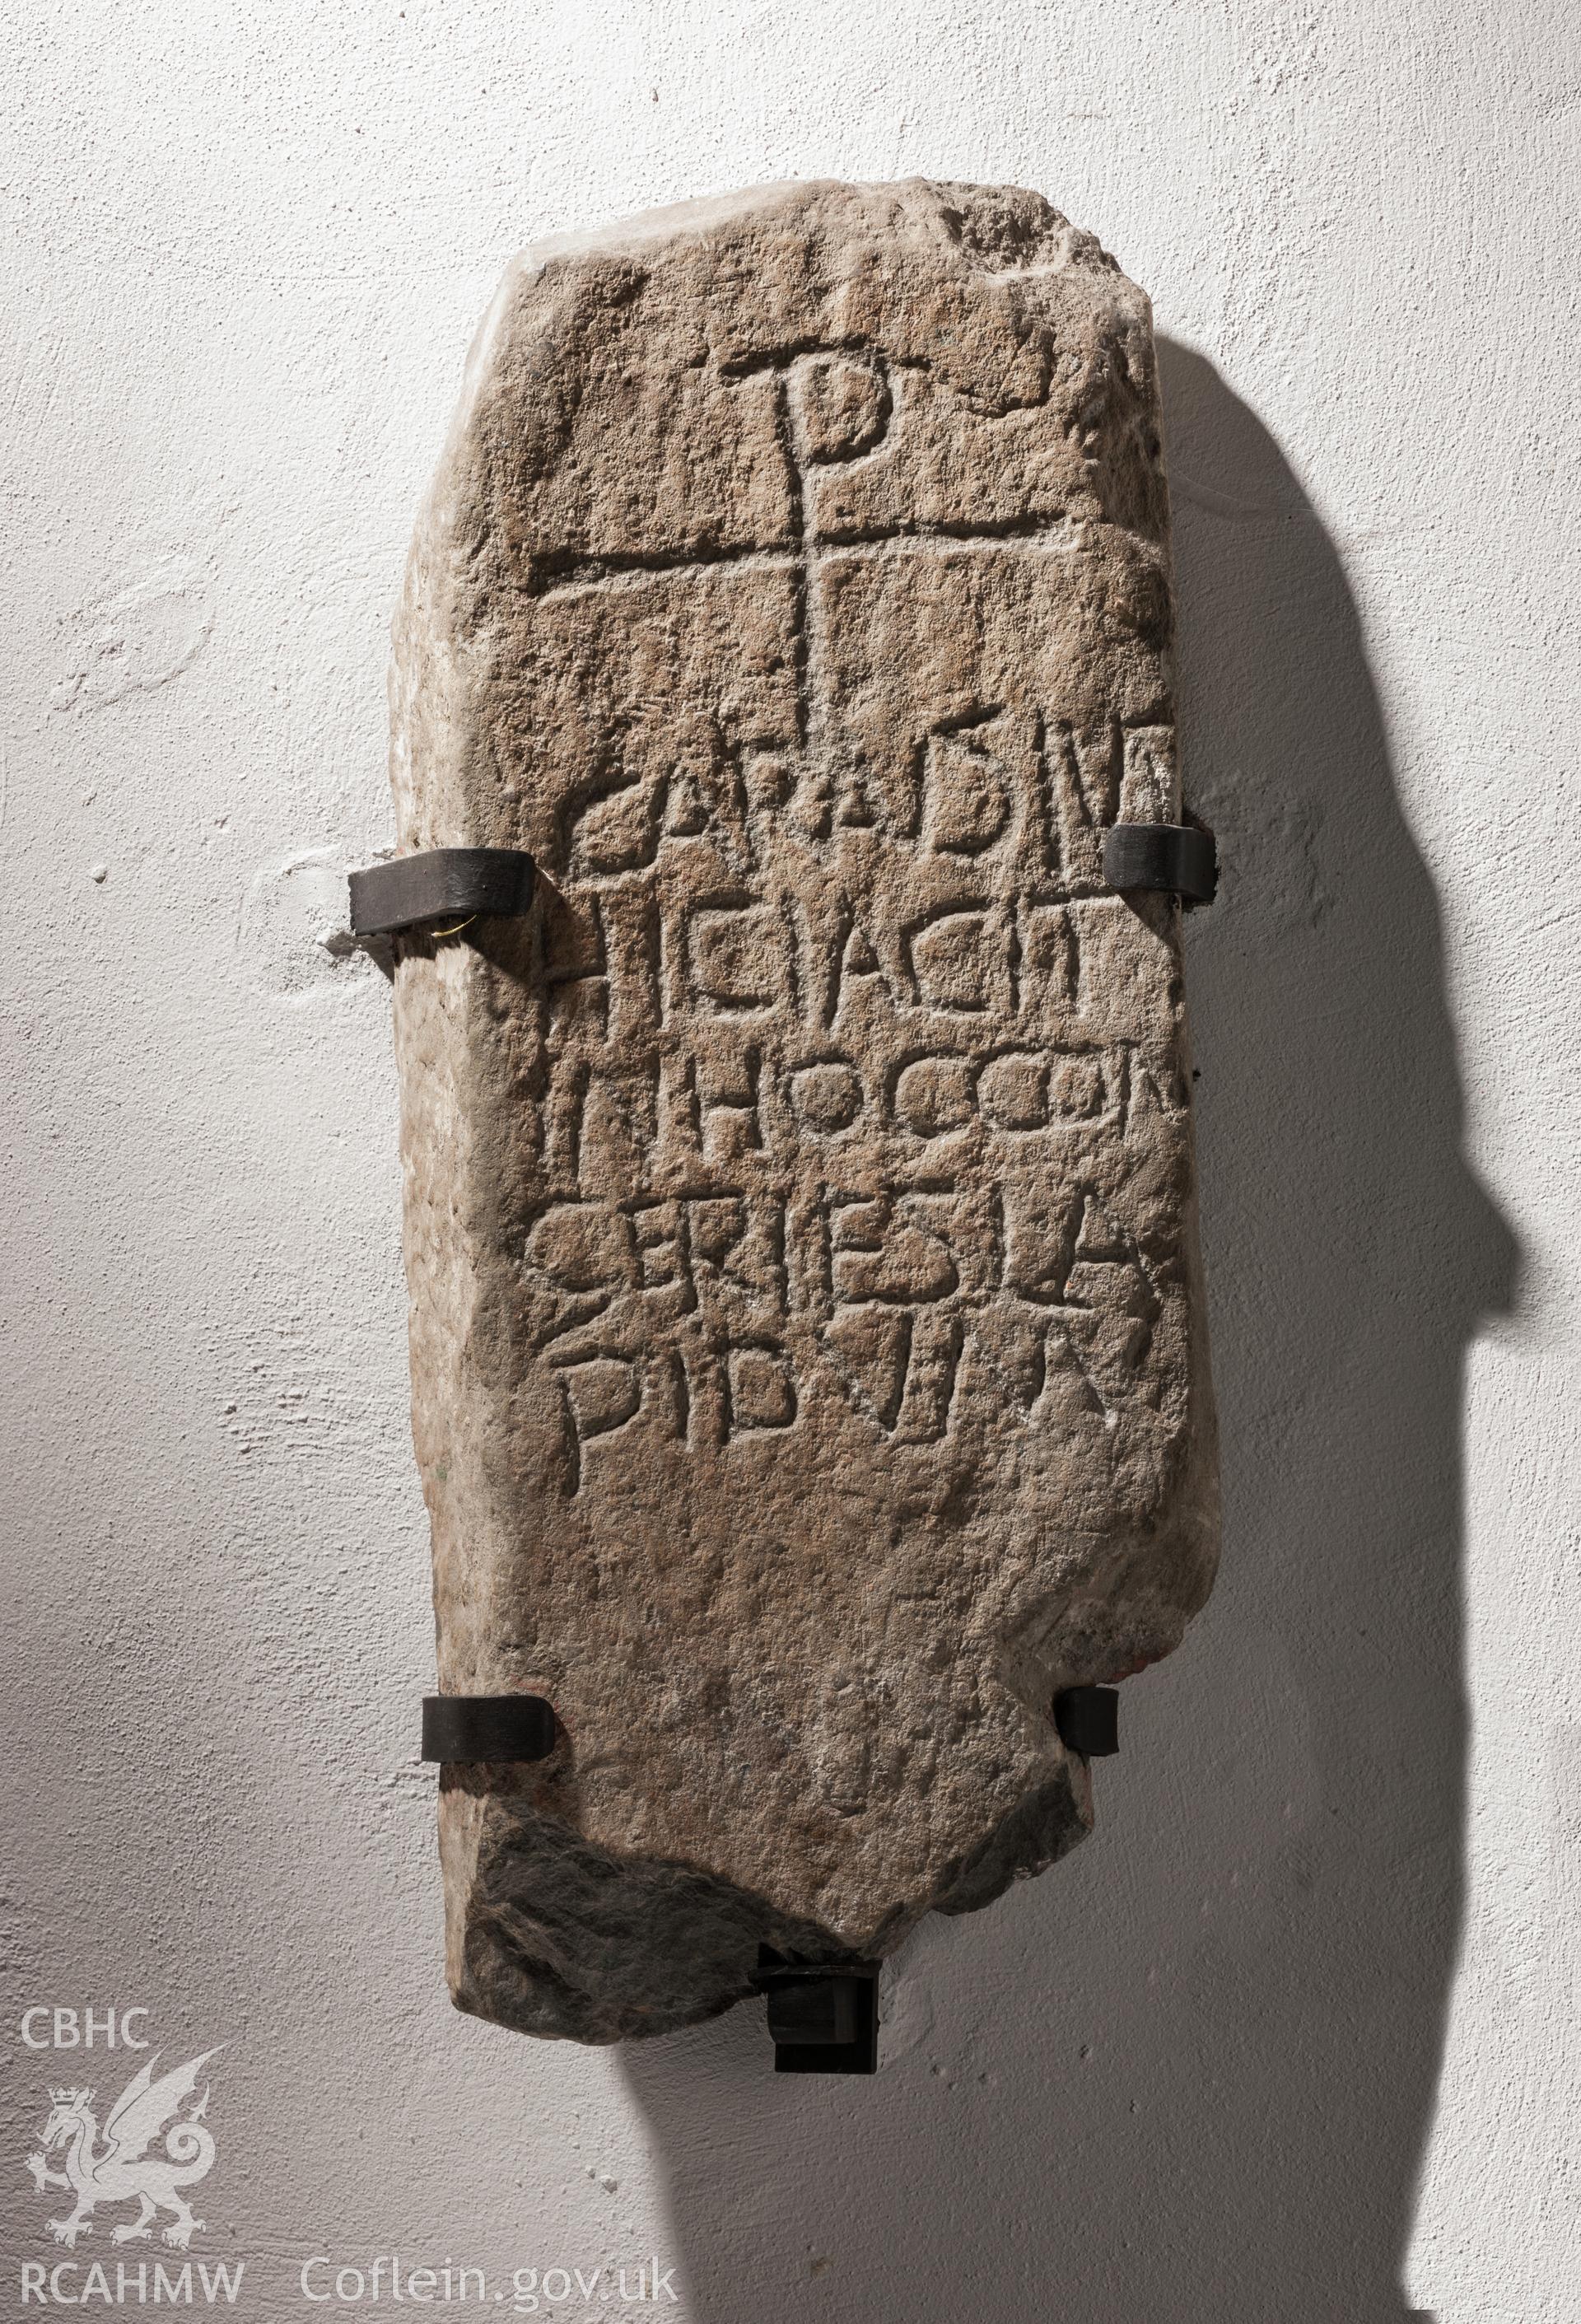 CARAVSIVS
HICIACIT
INHOCCON
GERIESLA
PIDVM
CBHC
RCAHMW
Coflein.gov.uk